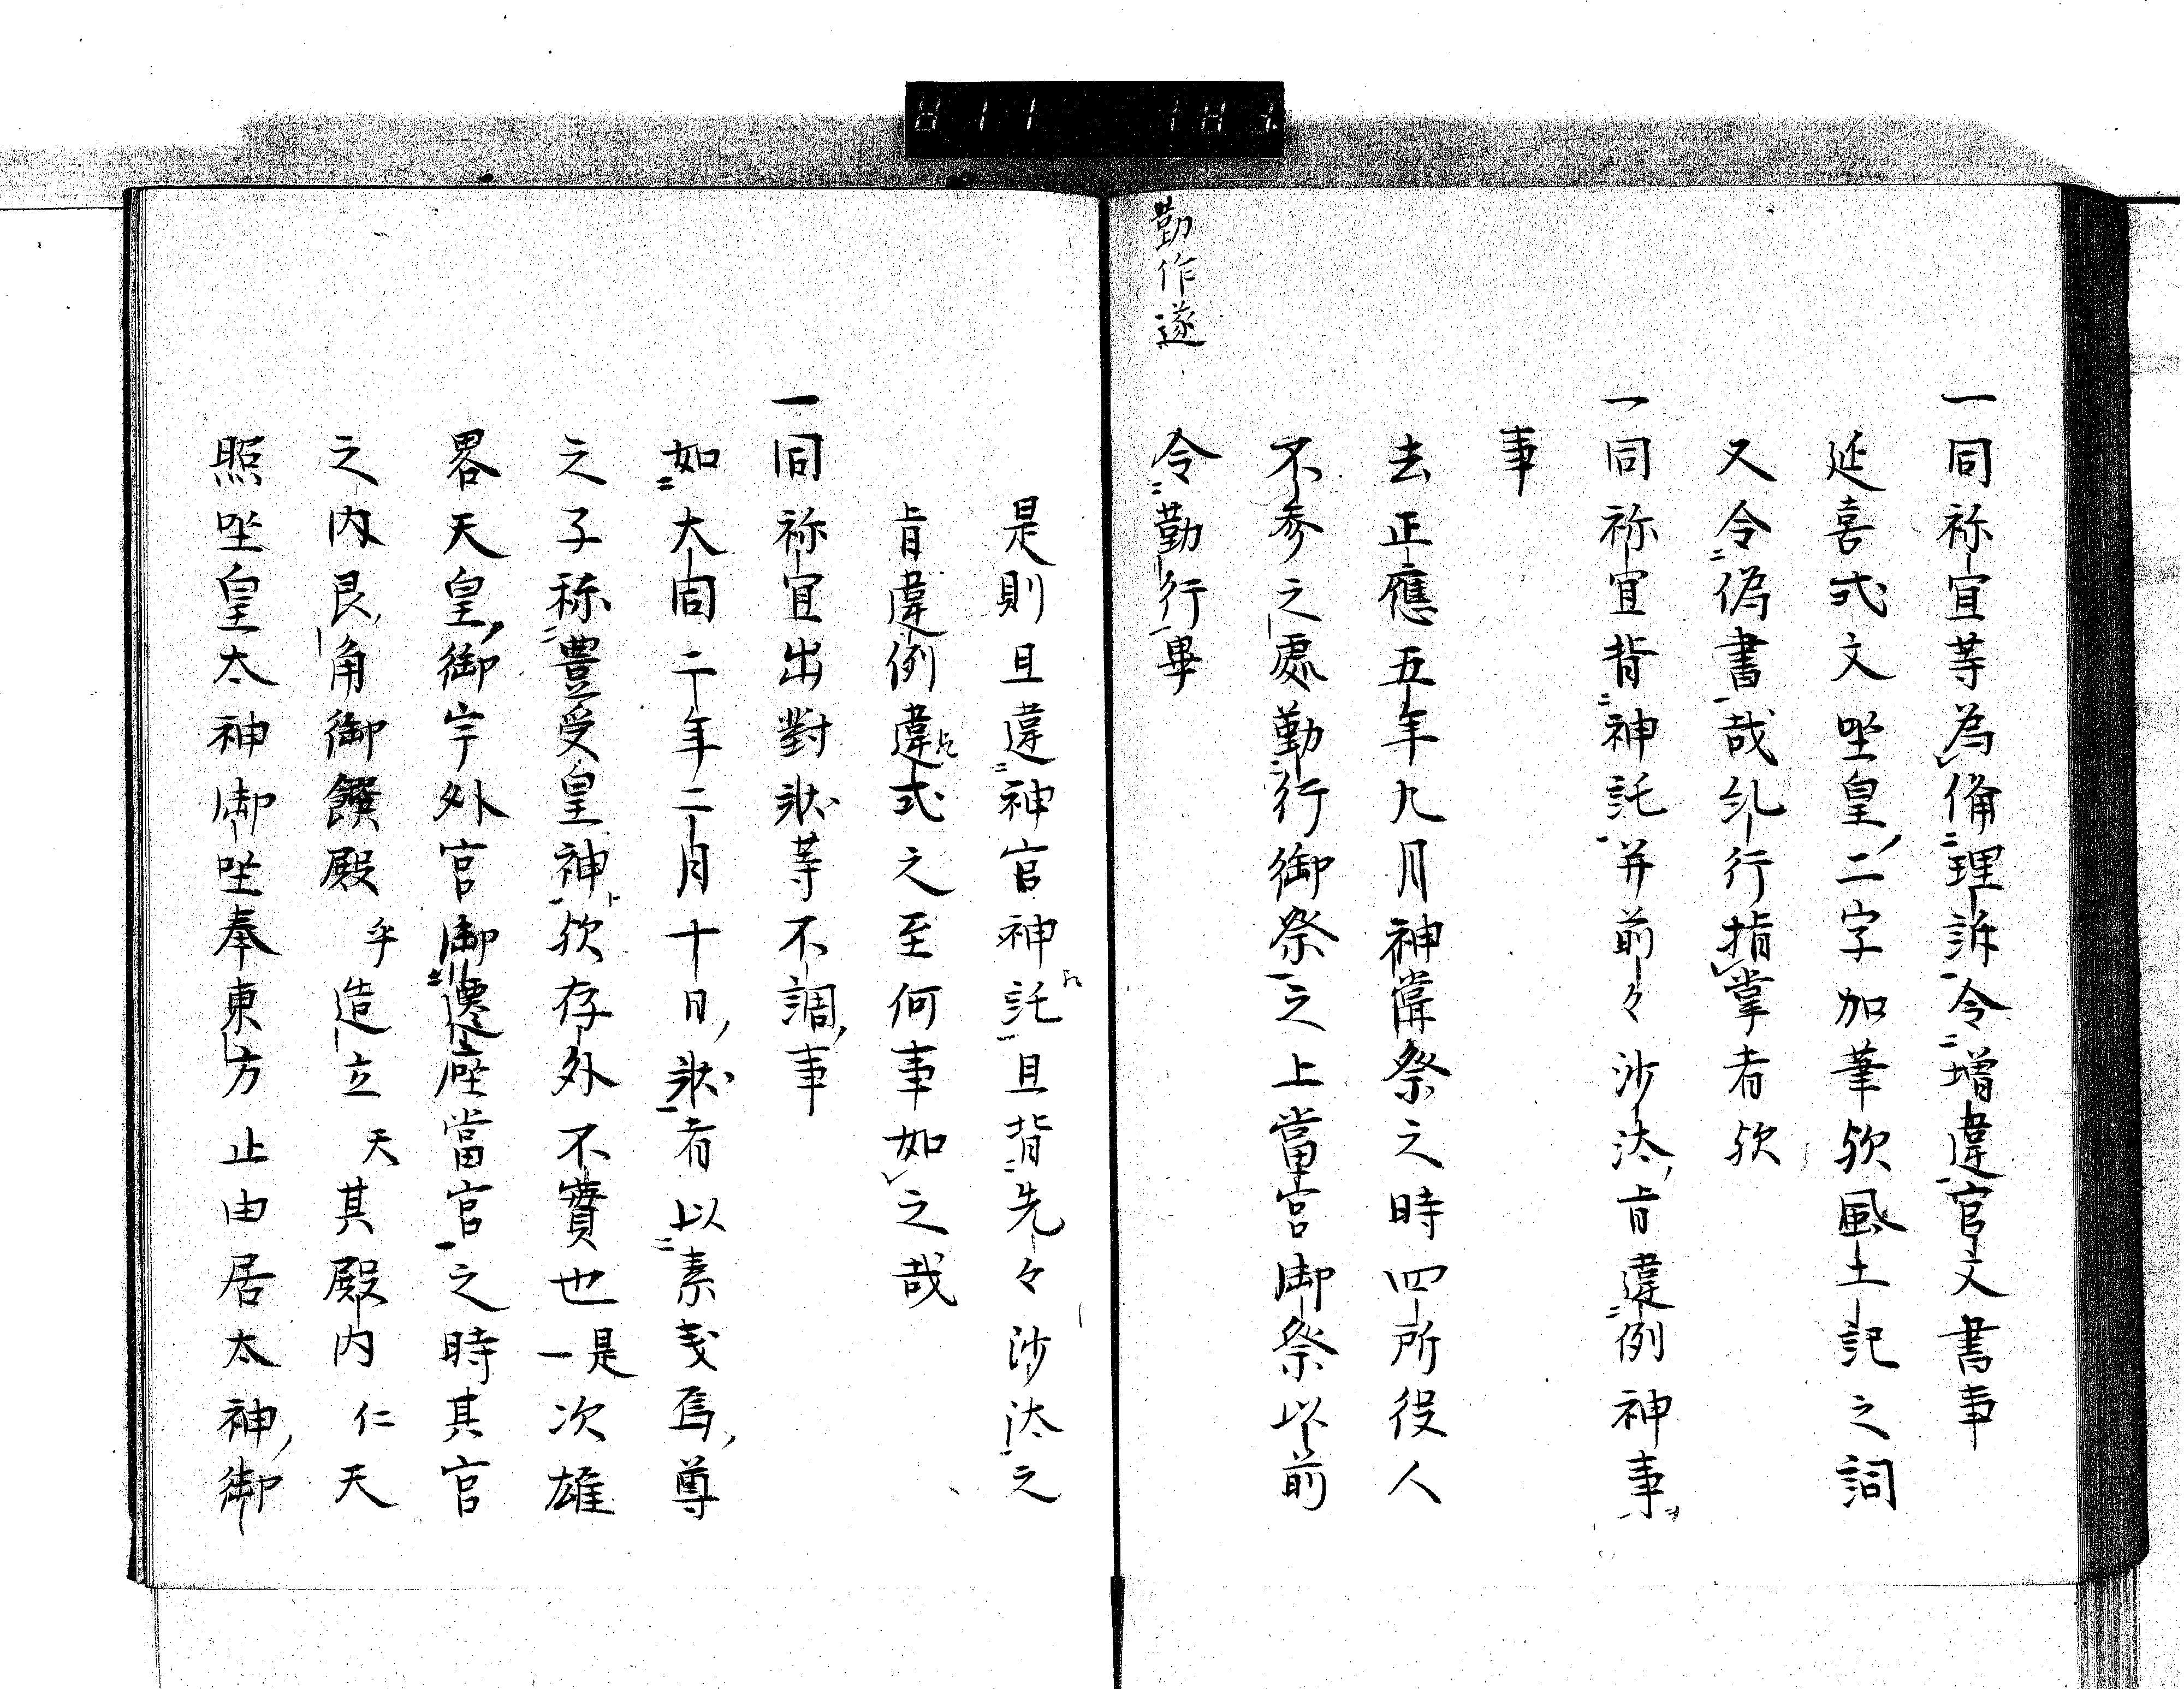 一同祢宜等為備理訴令増違官文書事
延喜式文坐皇二字加筆欤風土記之詞
又令偽書哉糺行指掌者欤
一同祢宜背神託并前々沙汰肯違例神事
事
去正應五年九月神嘗祭之時四所役人
不参之處勤行御祭之上當宮御祭以前
令勤行畢
勤作遂
是則且違神官神託且背先々沙汰之
肯違例違式之至何事如之哉
一同祢宜出對狀等不調事
如大同二年二月十日狀者以素戔烏尊
之子称豊受皇神欤存外不實也一是次雄
畧天皇御宇外宮御遷座當宮之時其宮
之内艮角御饌殿乎造立天其殿内仁天
照坐皇太神御坐奉東方止由居太神御